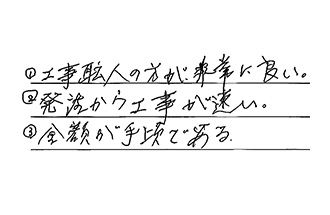 ①工事職人の方が非常に良い。
②発注から工事が速い。
③金額が手頃である.